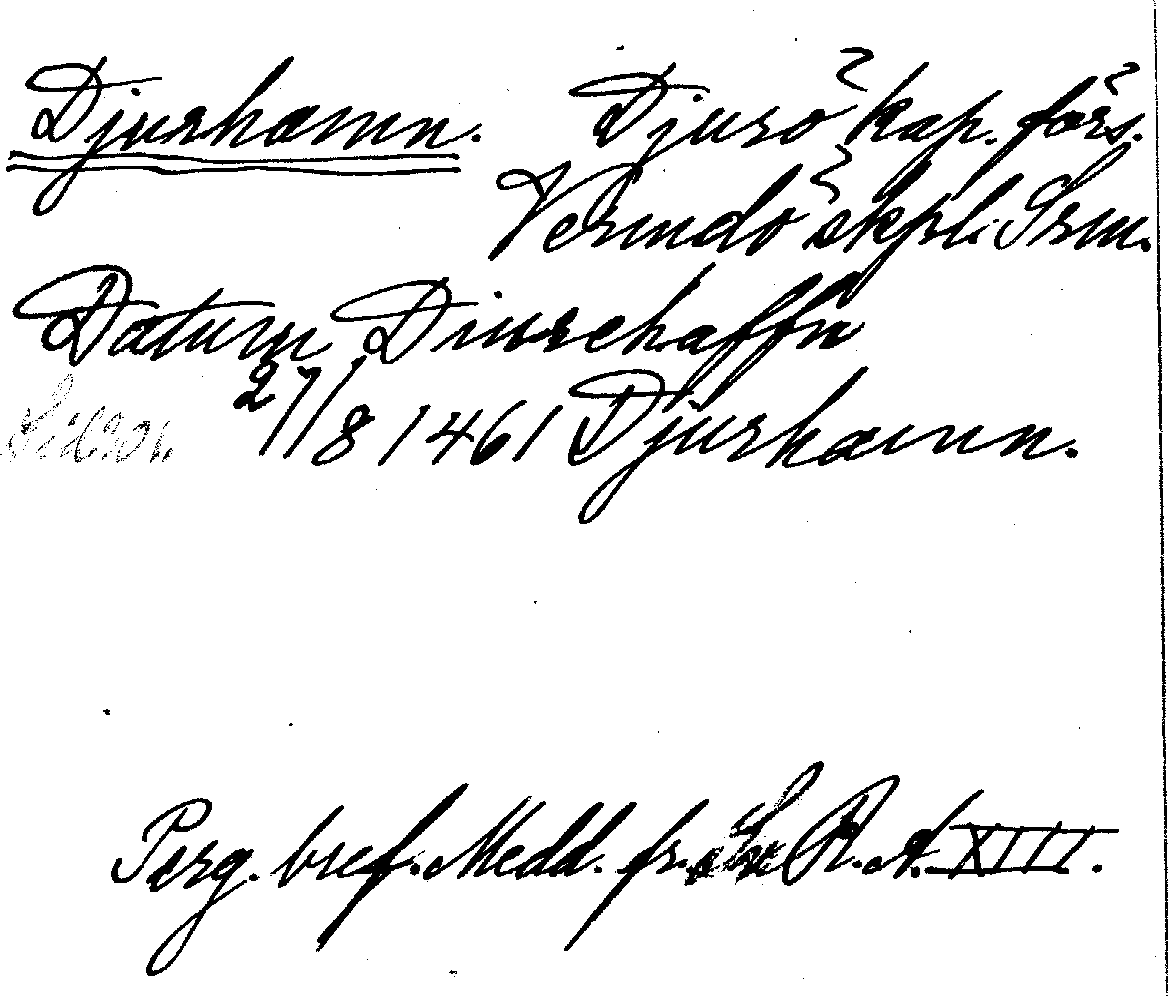 Djurhamn. Djurö kap. förs.
Värmdö skpl. Srm.
Datum Diurehaffn
27/8 1461 Djurhamn.
Perg. bref. Medd. fr. Sv R. A. XIII.